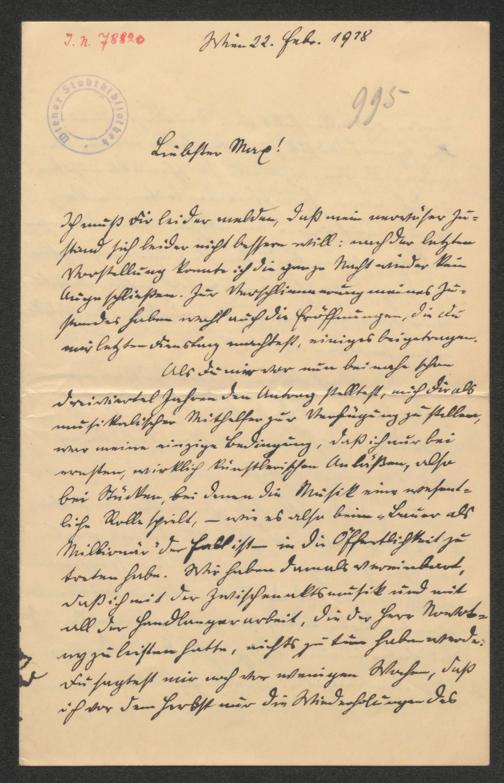 I.N. 78820
Wien 22. Febr. 1918
995
Wiener Stadtbibliothek
Liebster Max!
Ich muß Dir leider melden, daß mein nervöser Zu-
stand sich leider nicht bessern will: nach der letzten
Vorstellung konnte ich die ganze Nacht wieder kein
Auge schließen. Zur Verschlimmerung meines Zu-
standes haben wohl auch die Eröffnungen, die Du
mir letzten Dienstag machtest, einiges beigetragen.
Als Du mir vor nun beinahe schon
dreiviertel Jahren den Antrag stelltest, mich Dir als
musikalischer Mithelfer zur Verfügung zu stellen,
war meine einzige Bedingung, daß ich nur bei
ernsten, wirklich künstlerischen Anläßen, also
bei Stücken, bei denen die Musik eine wesent-
liche Rolle spielt, – wie es also beim „Bauer als
Millionär" der Fall ist – in die Öffentlichkeit zu
treten habe. Wir haben damals vereinbart,
daß ich mit der Zwischenaktsmusik und mit
all der Handlangerarbeit, die der Herr
zu leisten hatte, nichts zu tun haben werde.
Du sagtest mir noch vor wenigen Wochen, daß
ich vor dem Herbst nur die Wiederholungen des